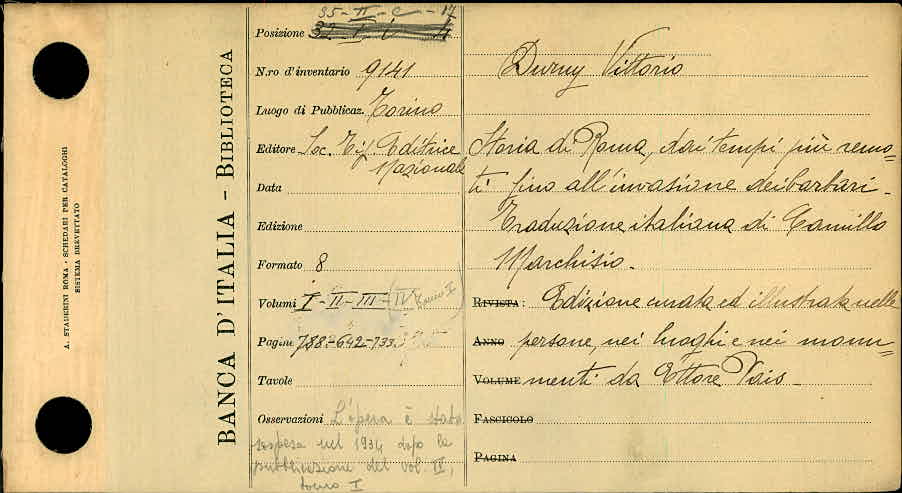 A. STADERINI ROMA - SCHEDARI PER CATALOGHI
SISTEMA BREVETTATO
BANCA D'ITALIA - BIBLIOTECA
35-II-C-17
Posizione
N.ro d'inventario 9141
Luogo di Pubblicaz. Torino
Editore Soc. Tip. Editrice
Nazionale
Data
Edizione
Formato 8
Volumi I-II-III-(IV Tomo I)
Pagine 788-642-733
Tavole
Osservazioni L'opera è stata
sospesa nel 1934 dopo la
pubblicazione del vol. IV,
tomo I
Duruy Vittorio
Storia di Roma, dai tempi più remo-
ti fino all'invasione dei barbari -
Traduzione italiana di Camillo
Marchisio -
RIVISTA: Edizione curata ed illustrata nelle
ANNO persone, nei luoghi e nei monu-
VOLUME menti da Ettore Pais -
FASCICOLO
PAGINA